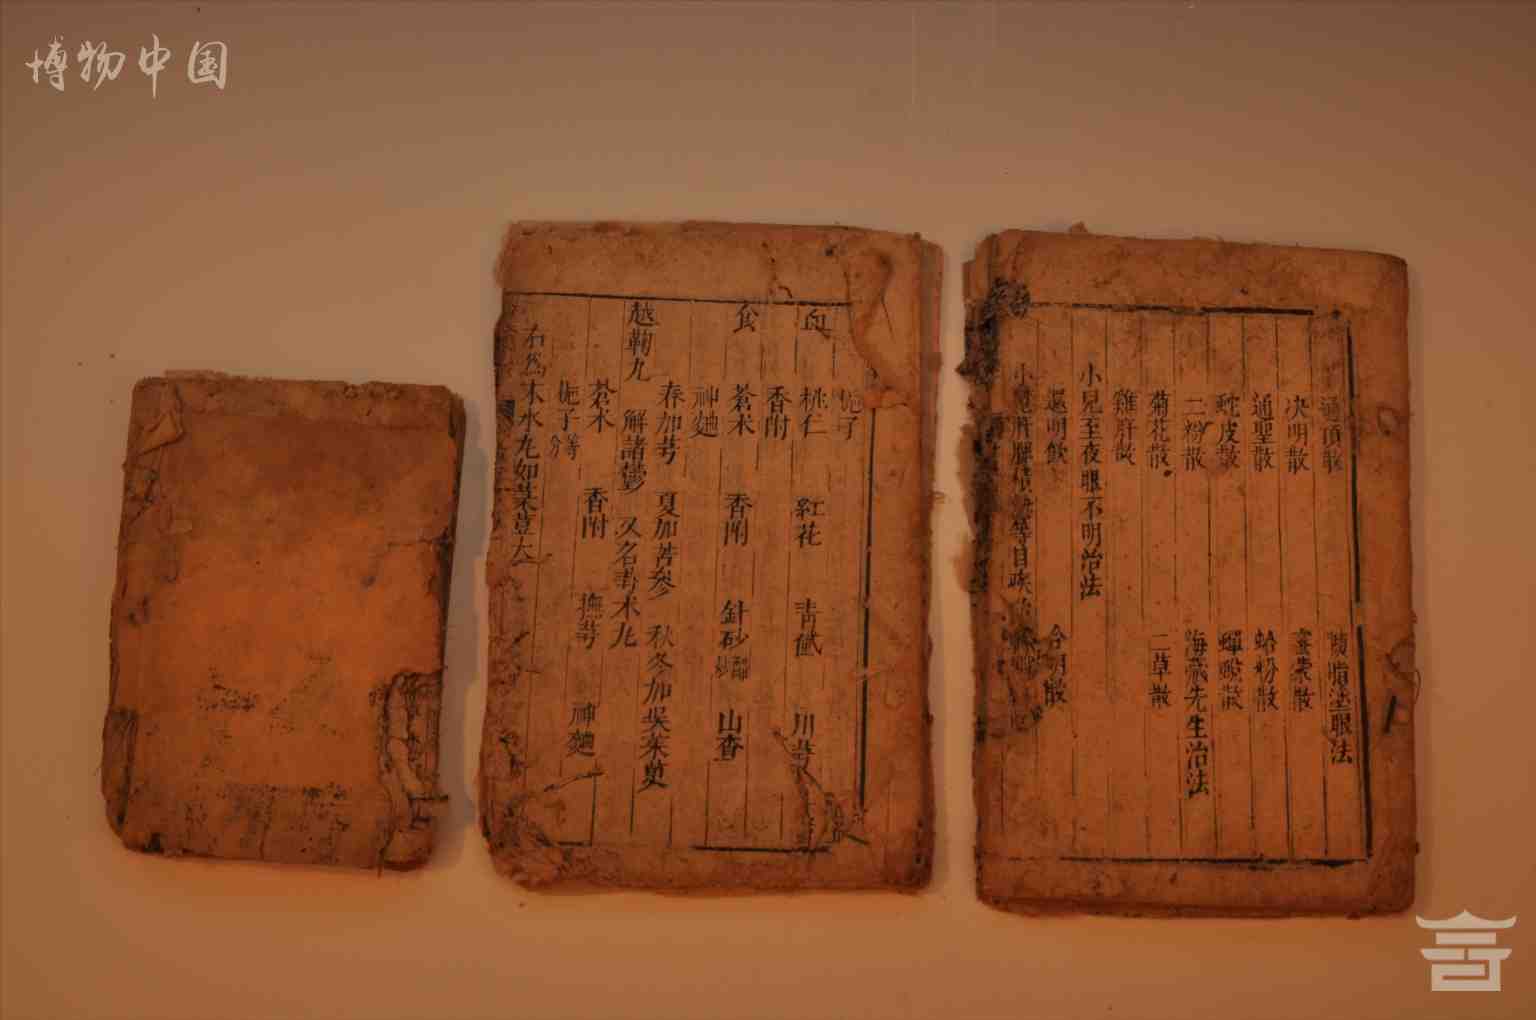 博物中国
梔子
血 桃仁 紅花 青黛 川芎
香附
食 蒼术 香附 針砂 醋炒 山查
神麯
春加芎 夏加苦參 秋冬加吳茱萸
越鞠丸 解諸鬱 又名芎术丸
蒼术 香附 撫芎 神麯
梔子 等分
右為末水丸如菉豆大
通頂散 塗眼法
决明散 散
通聖散 蛤粉散
蛇皮散 蟬蛻散
二粉散 海藏先生治法
菊花散 二草散
雞肝散
小兒至夜眼不明治法
還明飲 合明散
小兒 等目疾治